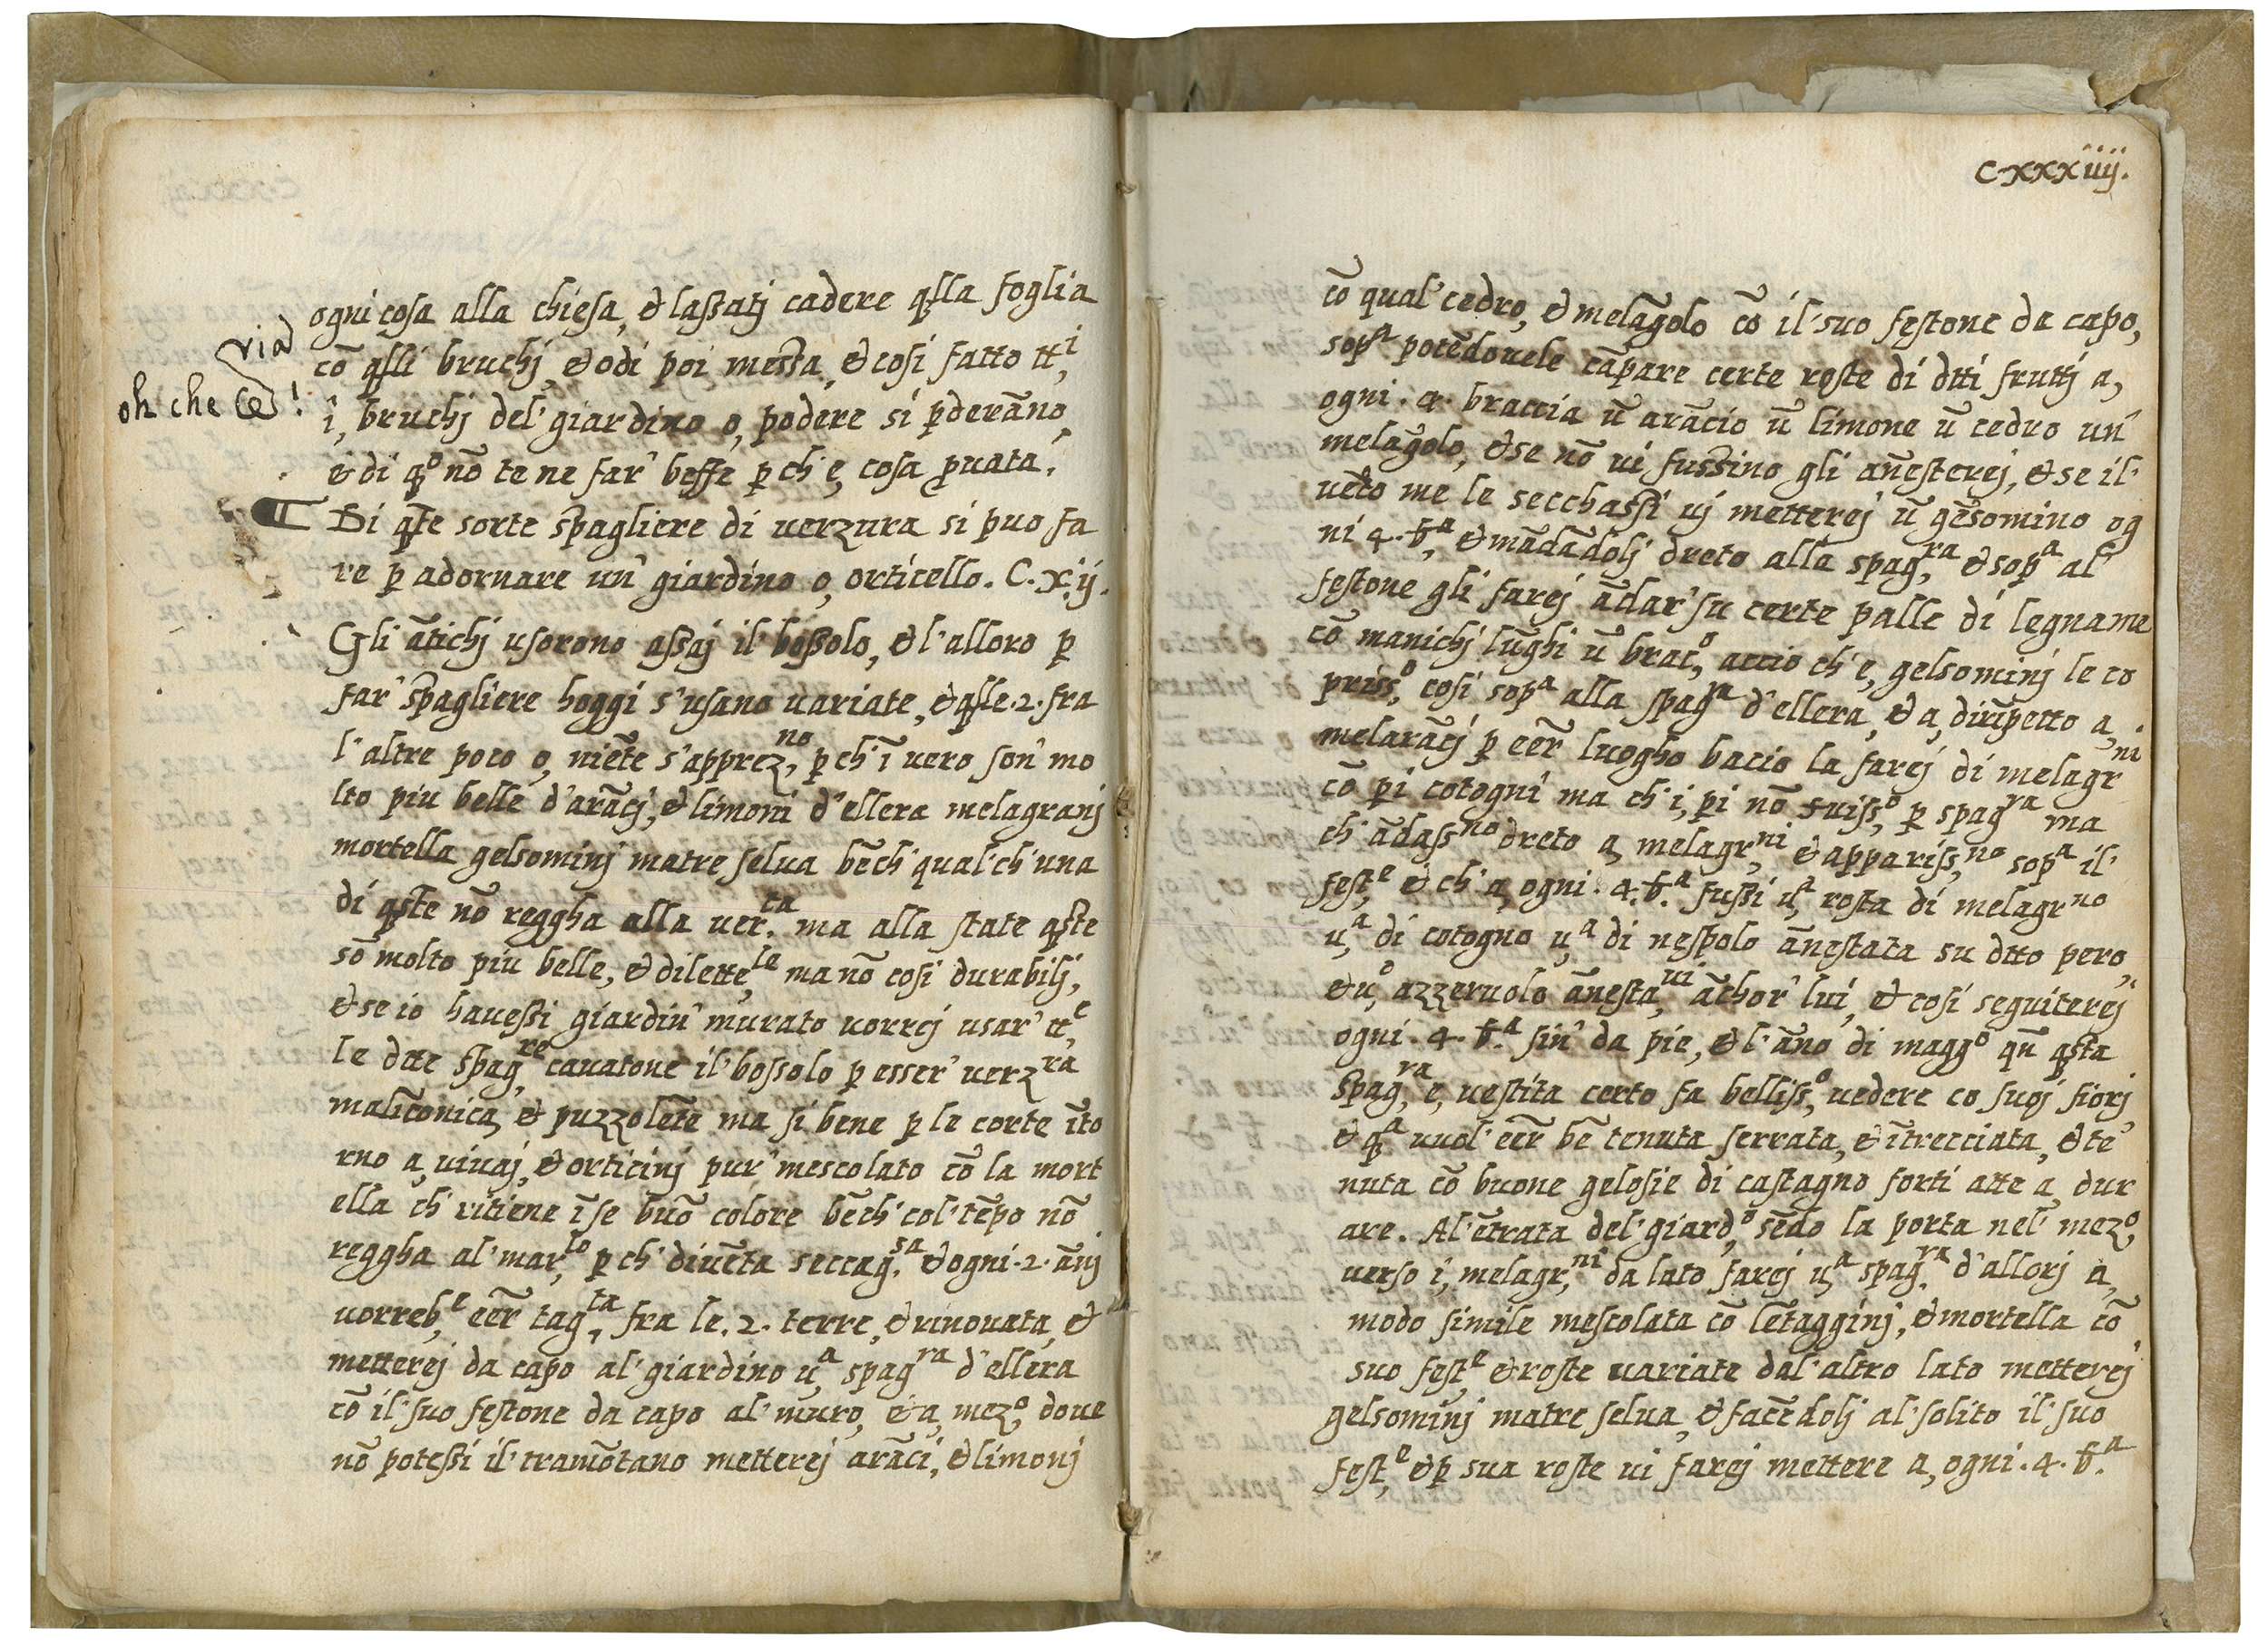 ogni cosa alla chiesa, & lassatj cadere q̃lla foglia
via
cō q̃lli bruchj, & odi poi messa, & cosi fatto tt,ⁱ
oh che cẽ!
î, bruchj del' giardino o, podere si p̱derāno,
& di q̃º nō te ne far' beffe p̱ch' e, cosa p̱uata.
Di q̃te sorte spagliere di uerzura si puo fa
re p̱ adornare un' giardino o, orticello. C. x.ij.
Gli ātichj usorono assaj il' bossolo, & l'alloro p̱
far' spagliere hoggi s'usano uariate, & q̃lle .2. fra
l'altre poco o, niēte s'apprez,ⁿᵒ p̱ch' ī uero son' mo
lto piu belle d'arācj, & limoni d'ellera melagranj
mortella gelsominj matre selua bēch' qual'ch' una
di q̃ste nō reggha alla uer.ᵗᵃ ma alla state q̃ste
sō molto piu belle, & dilette,ˡᵉ ma nō cosi durabilj,
& se io hauessi giardin' murato uorrej usar' tt,ᵉ
le dtte spag,ʳᵉ cauatone il' bossolo p̱ esser' uerzʳᵃ
malīconica, & puzzolēte ma si bene p̱ le corte īto
rno a, uiuaj, & orticinj pur' mescolato cō la mort
ella ch' ritiene ī se buō colore bēch' col' tēpo nō
reggha al' mar,ˡᵒ p̱ch' diuēta seccag.ˢᵃ & ogni .2. ānj
uorreb,ᵉ eēr tag,ᵗᵃ fra le .2. terre, & rinouata, &
metterej da capo al' giardino u,ᵃ spagʳᵃ d'ellera
cō il' suo festone da capo al' muro, & a, mez,º doue
nō potessi il' tramōtano metterej arāci, & limonj
CXXXiiij.
cō qual' cedro, & melāgolo cō il' suo festone da capo,
sopᵃ potēdouele cāpare certe roste di dtti fruttj a,
ogni .4. braccia ū arācio ū limone ū cedro un'
melāgolo, & se nō ui fussino gli anēsterej, & se il'
uēto me le secchassi uj metterej ū gēsomino og
ni 4. b̶,ᵃ & mādādolj dreto alla spag,ʳᵃ & sopᵃ al'
festone gli farej ādar' su certe palle di legname
cō manichj lūghi ū brac,º accio ch' e, gelsominj le co
priss,º cosi sopᵃ alla spagʳᵃ d'ellera, & a, dirīpetto a,
melarācj p̱ eēr luogho bacio la farej di melagrⁿⁱ
cō p̱i cotogni ma ch' i, p̱i nō fuiss,º p̱ spagʳᵃ ma
ch' ādassⁿᵒ dreto a, melagr,ⁿⁱ & appariss,ⁿᵒ sopᵃ il'
fest,ᵉ & ch' a, ogni .4. b̶.ᵃ fussi u,ᵃ rosta di melagrⁿᵒ
u,ᵃ di cotogno u,ᵃ di nespolo ānestata su dtto pero,
& u,º azzeruolo ānesta,ᵘⁱ āchor' lui, & cosi seguiterej
ogni .4. b̶.ᵃ sin' da pie, & l'āno di maggº qn̄ q̃sta
spag,ʳᵃ e, uestita certo fa belliss,º uedere co suoj fiorj
& q̃ᵃ uuol' eēr bē tenuta serrata, & ītrecciata, & te
nuta cō buone gelosie di castagno forti atte a, dur
are. Al' ētrata del' giard,º sēdo la porta nel' mez,º
uerso i, melagr,ⁿⁱ da lato farej u,ᵃ spag.ʳᵃ d'allorj a,
modo simile mescolata cō lētagginj, & mortella cō
suo fest,ᵉ & roste uariate dal' altro lato metterej
gelsominj matre selua, & facēdolj al' solito il' suo
fest,ᵉ & p̱ sua roste ui farej mettere a, ogni .4. b̶.ᵃ